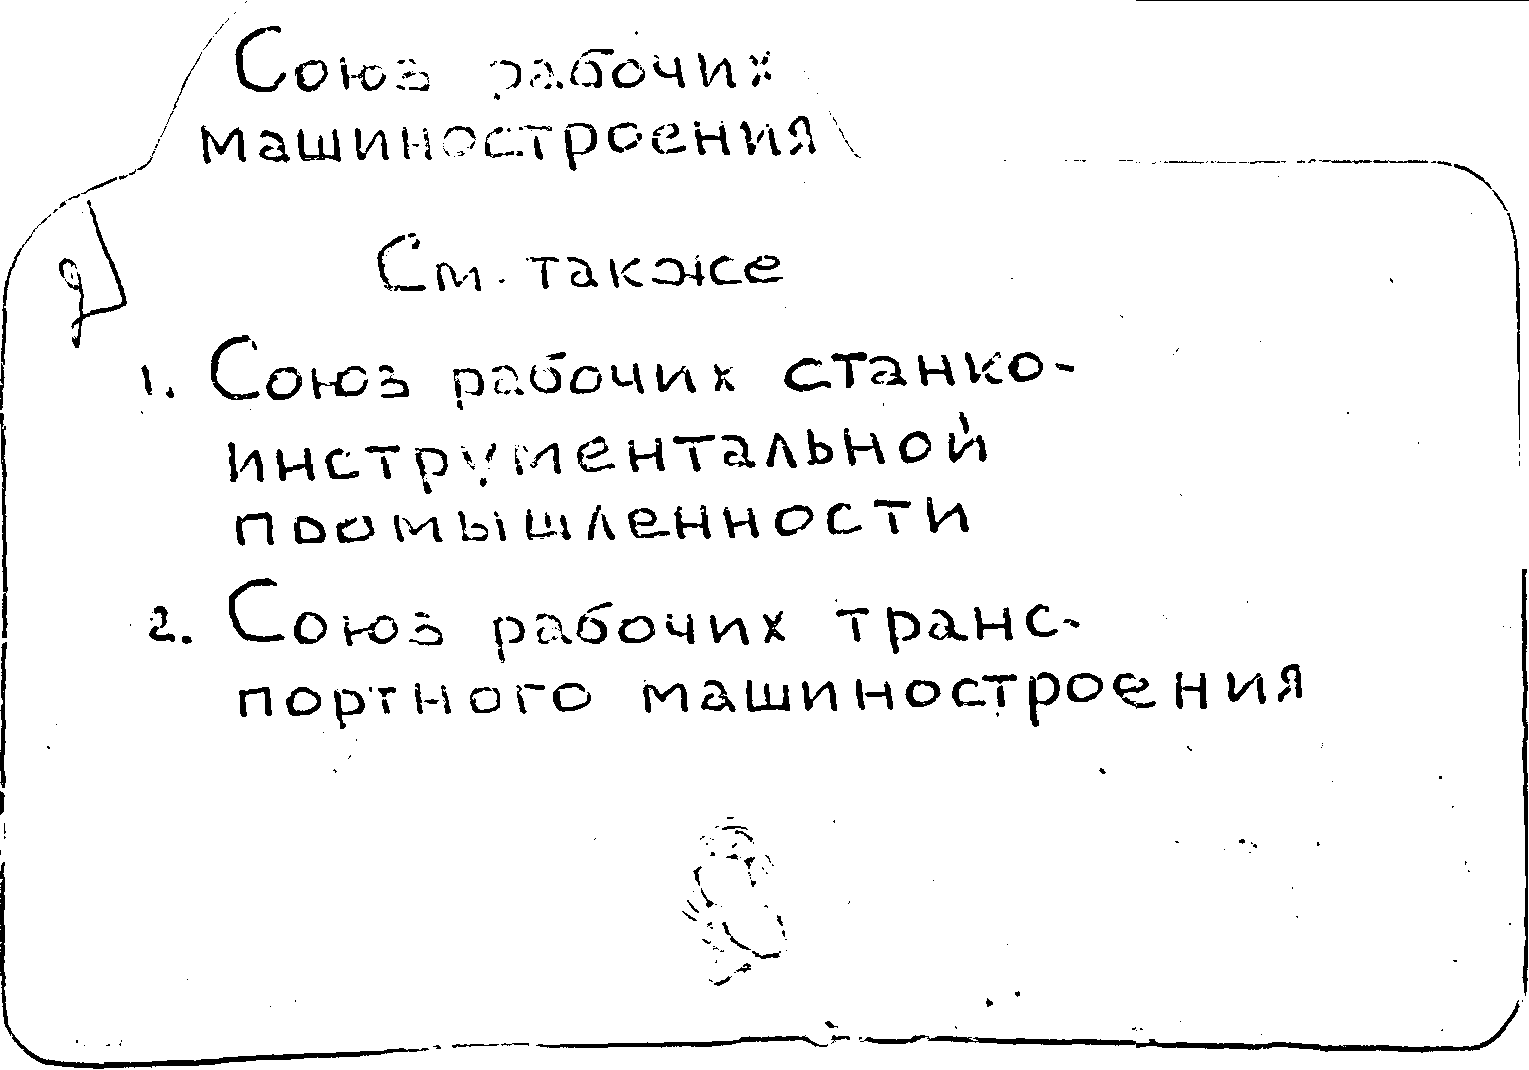 Союз рабочих
машиностроения
См. также
1. Союз рабочих станко-
инструментальной
промышленности
2. Союз рабочих транс-
портного машиностроения